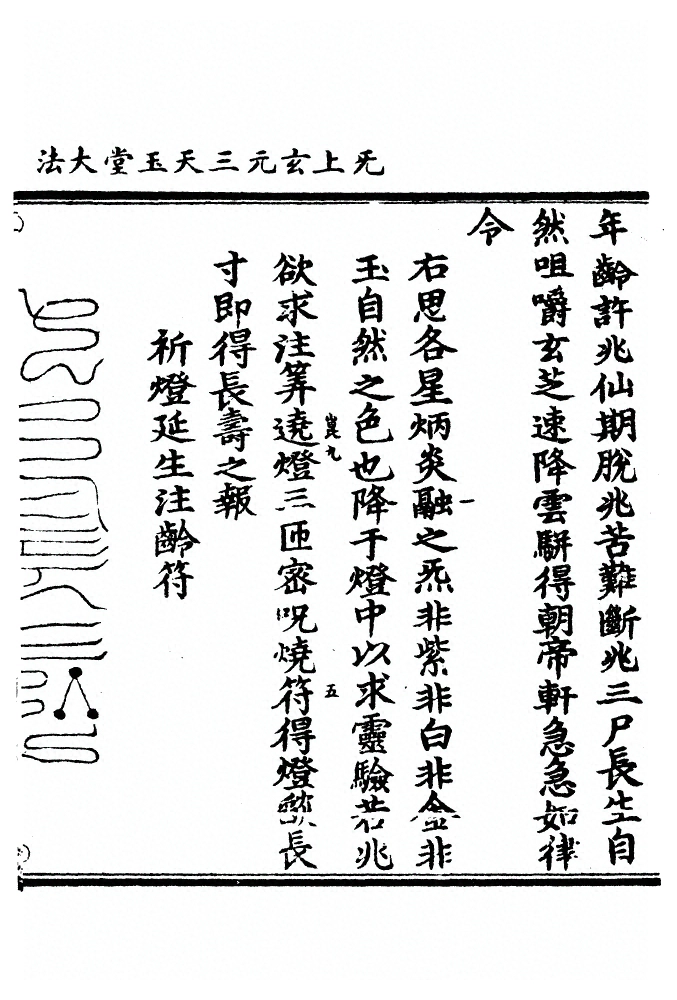 无上玄元三天玉堂大法
年齡許兆仙期脫兆苦難斷兆三尸長生自
然咀嚼玄芝速降雲駢得朝帝軒急急如律
令
右思各星炳炎融一之炁非紫非白非金非
玉自然之色也降于燈中以求靈驗若兆
欲求注筭遶燈三匝密呪燒符得燈㷔長
崑九
五
寸即得長壽之報
祈燈延生注齡符